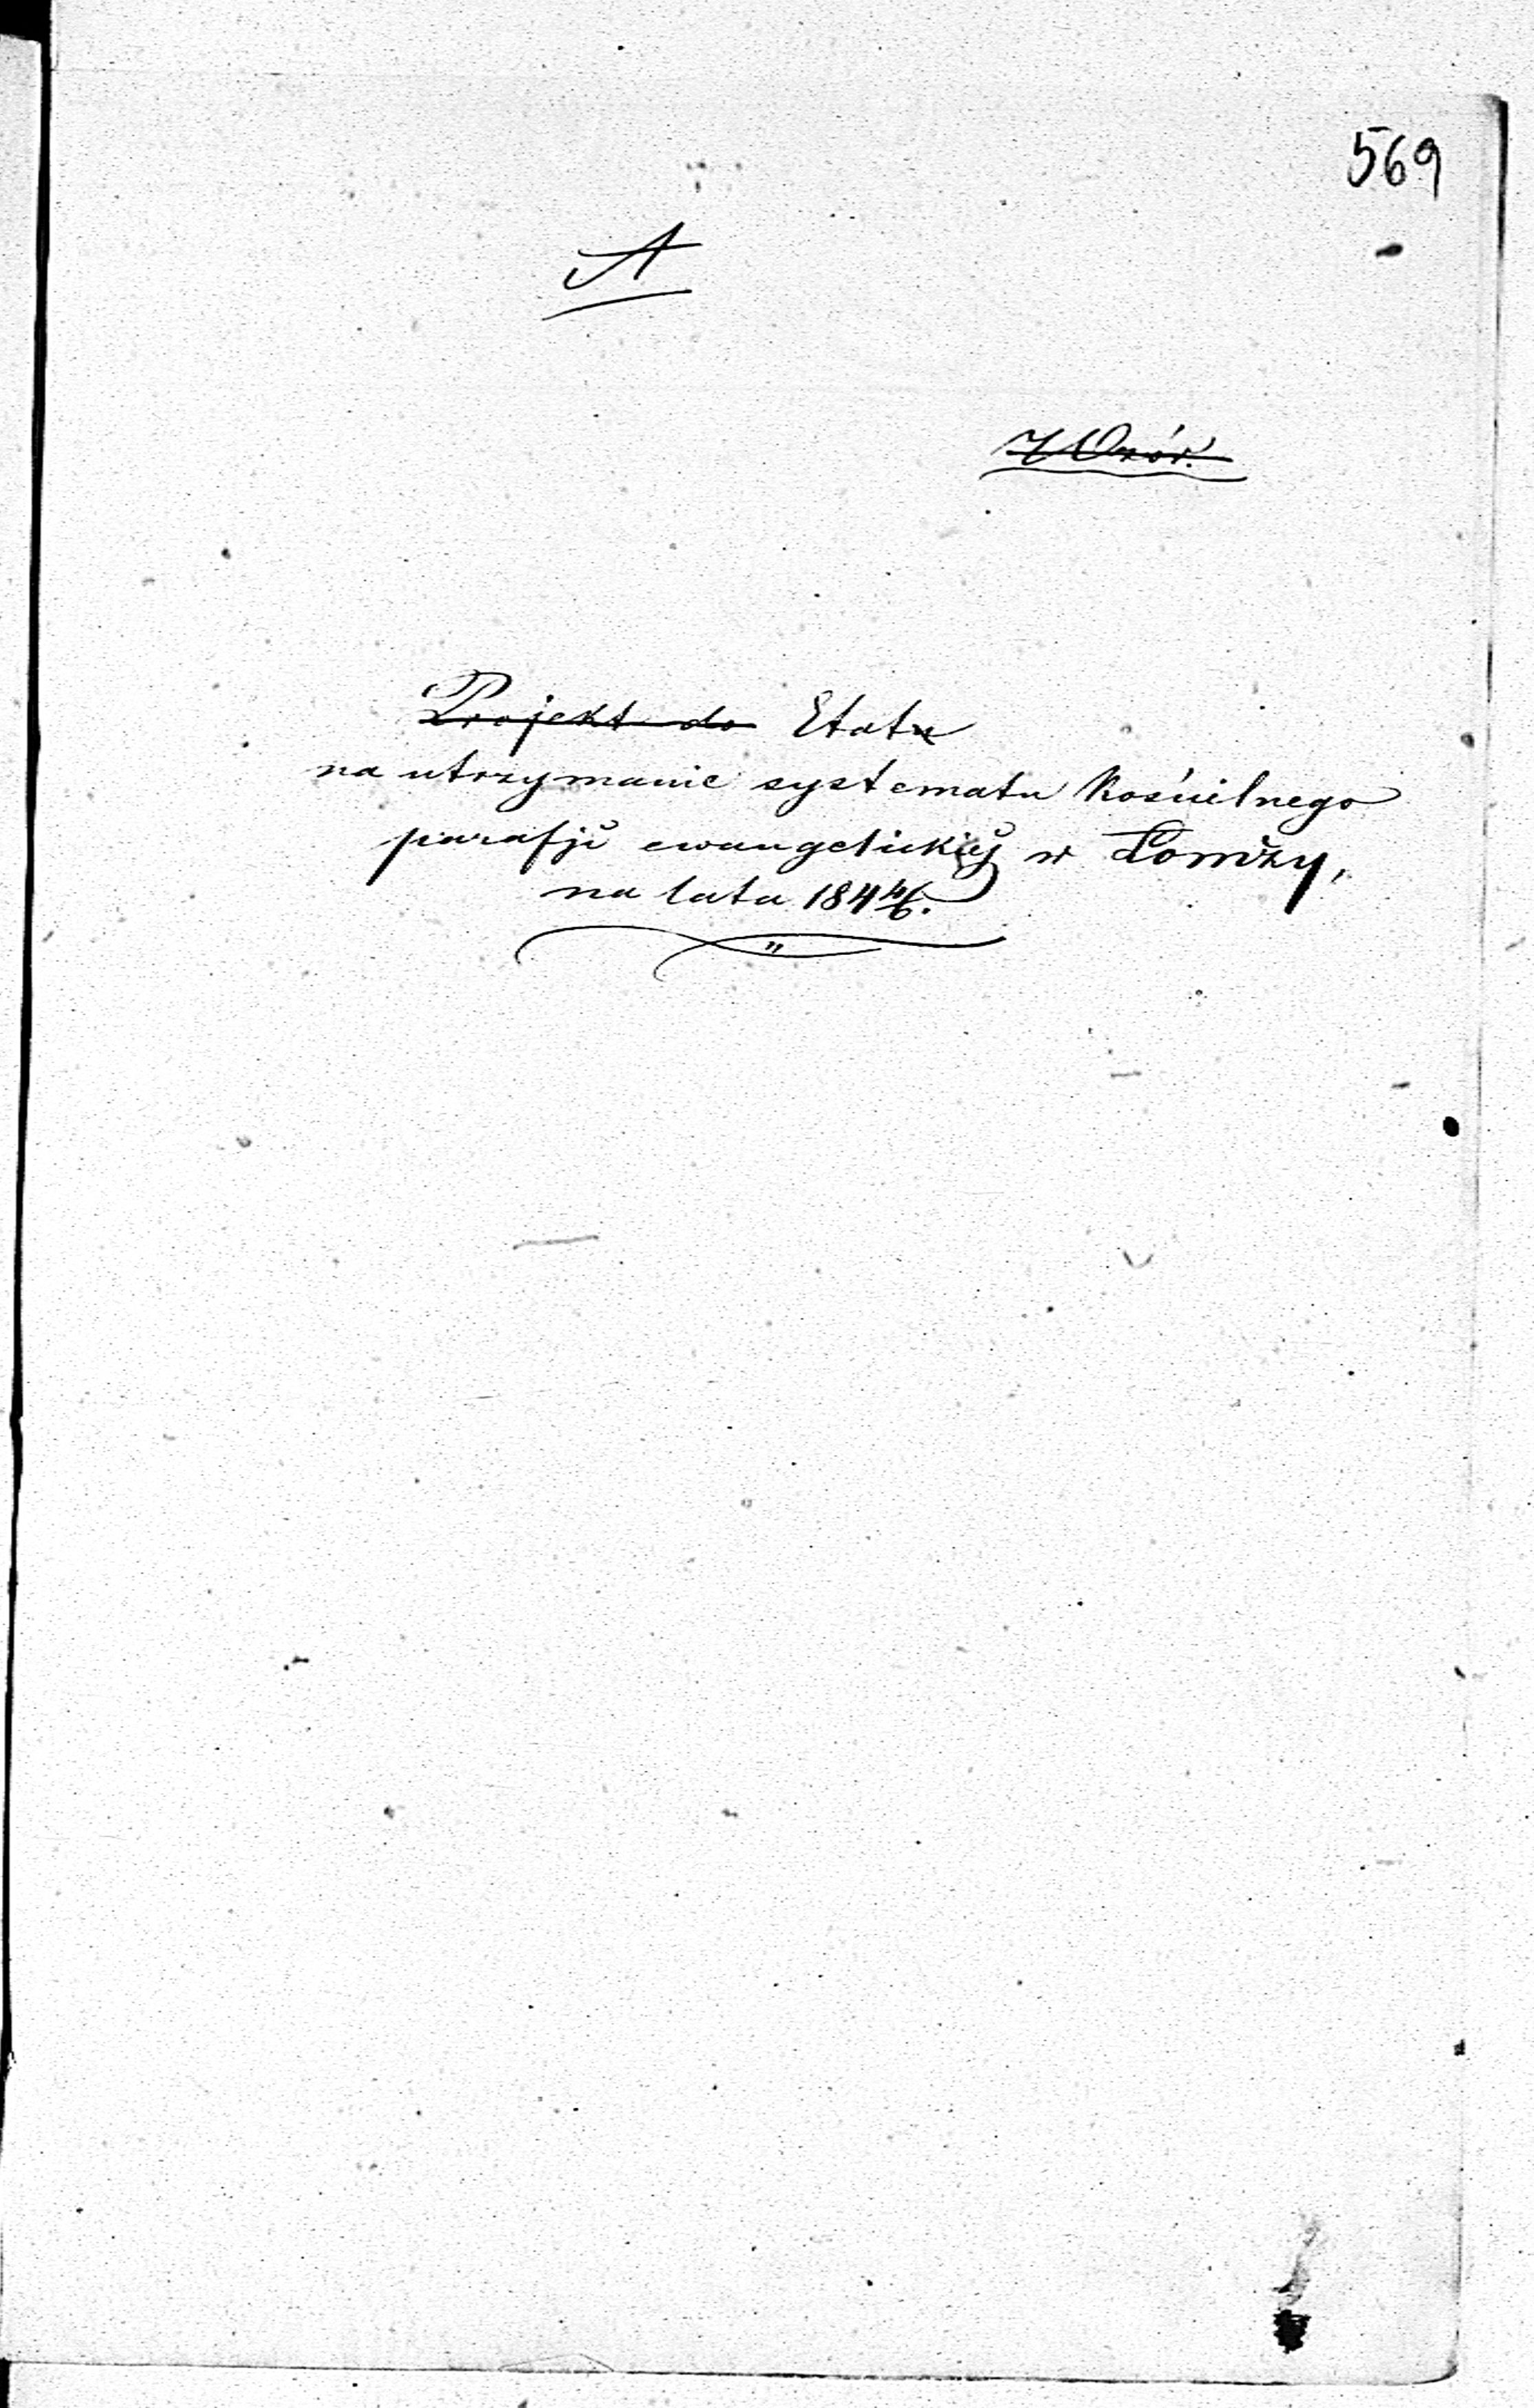 569
A
Wzór.
Projekt do Etatu
na utrzymanie systematu Kościelnego
parafji ewangelickiej w Łomży,
na lata 184 4/6.